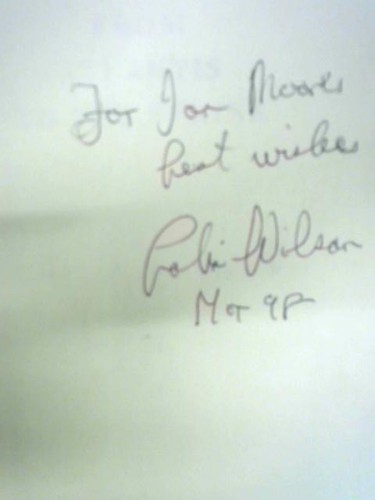 For Ian Moore
best wishes
Colin Wilson
Mar 98